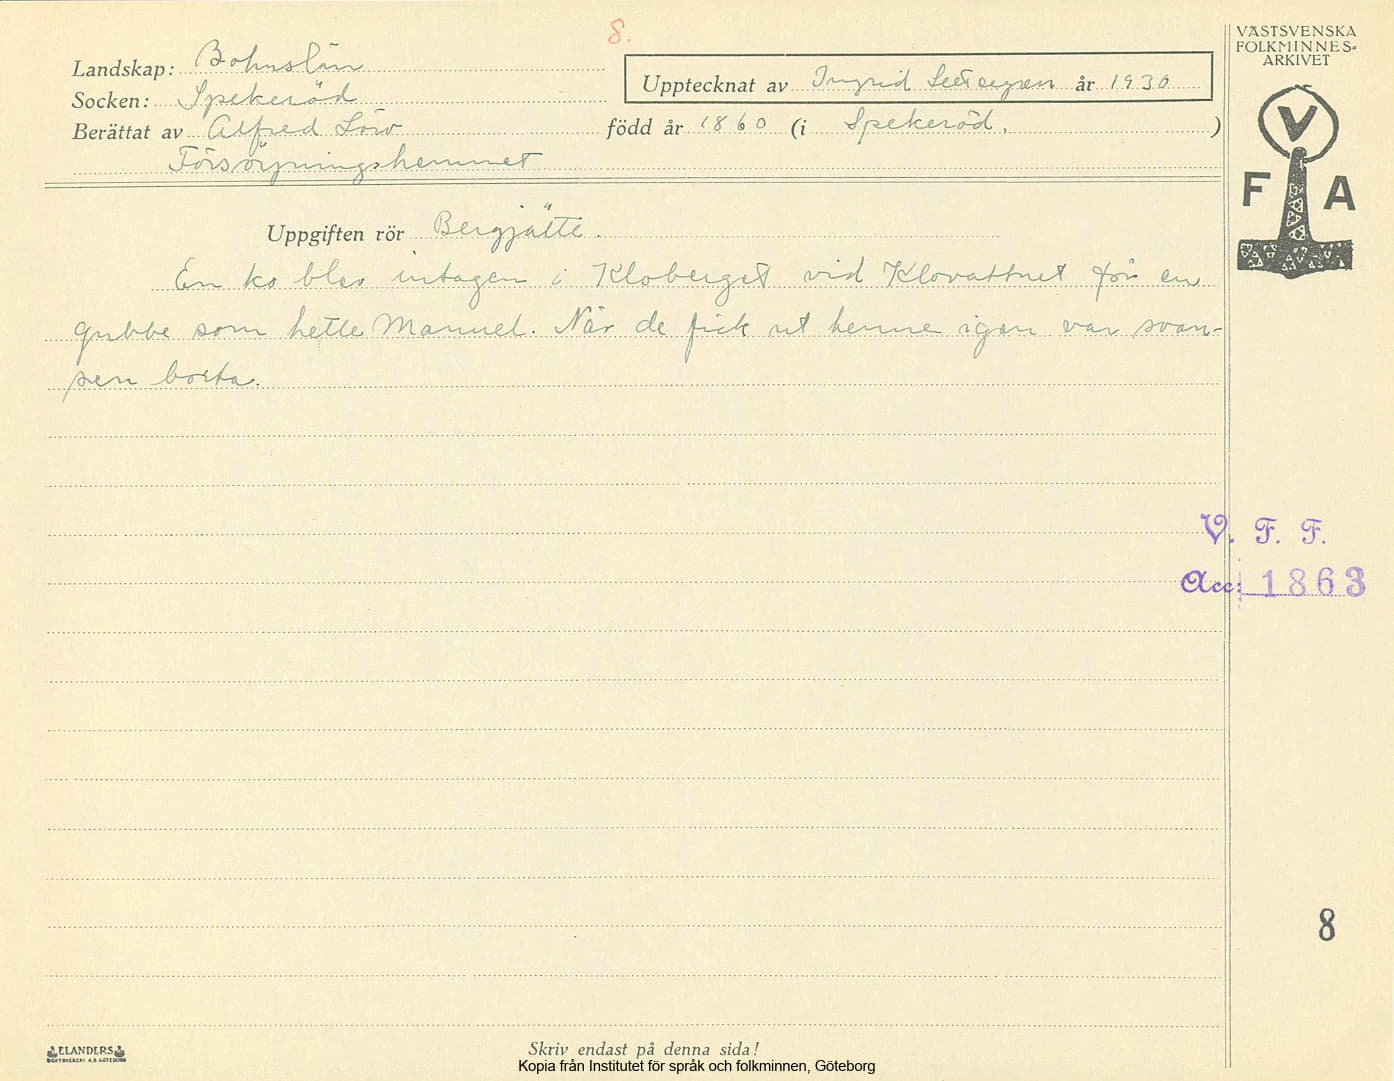 8.
VÄSTSVENSKA
FOLKMINNES-
ARKIVET
Landskap: Bohuslän
Upptecknat av Ingrid år 1930
Socken: Spekeröd
Berättat av Alfred Löw född år 1860 (i Spekeröd. )
Försörjningshemmet
V
F A
Uppgiften rör Bergjätte.
En ko blev intagen i Kloberget vid Klovattnet för en
gubbe som hette Manuel. När de fick ut henne igen var svan-
sen borta.
V. F. F.
Acc: 1863
8
ELANDERS
BOKTRYCKERI A.B. GÖTEBORG
Skriv endast på denna sida!
Kopia från Institutet för språk och folkminnen, Göteborg